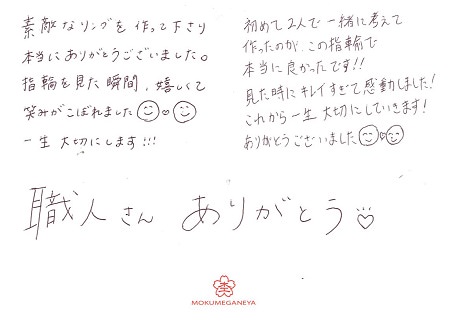 素敵なリングを作って下さり
本当にありがとうございました。
指輪を見た瞬間、嬉しくて
笑みがこぼれました
一生大切にします!!!
初めて2人で一緒に考えて
作ったのが、この指輪で
本当に良かったです!!
見た時にキレイすぎて感動しました!
これから一生大切にしていきます!
ありがとうございました
職人さん ありがとう♡
MOKUMEGANEYA